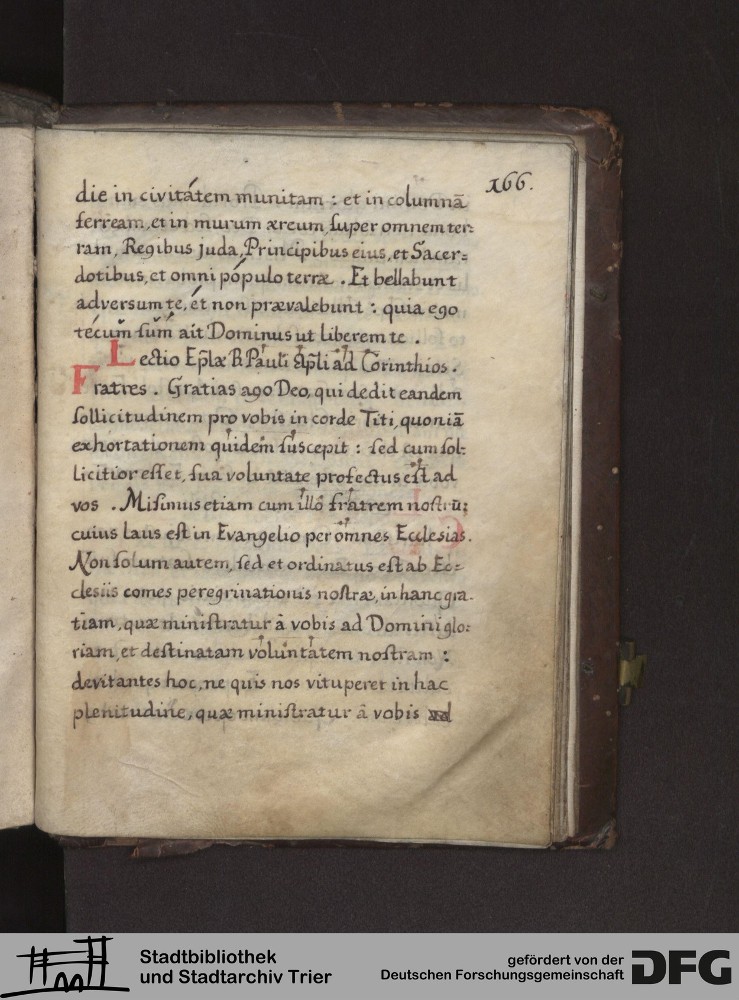 166.
die in civitátem munitam : et in columnā
ferream, et in murum æreum, ſuper omnem ter=
ram, Regibus juda, Principibus eius, et Sacer=
dotibus, et omni pópulo terræ . Et bellabunt
adversum te, ét non prævalebunt : quia ego
técum ſum ait Dominus ut liberem te .
Lectio Ep̃læ B. Pauli Ap̃li ad Corinthios .
Fratres . Gratias ago Deo, qui dedit eandem
ſollicitudinem pro vobis in corde Titi, quoniā
exhortationem quidem ſuscepit : ſed cum ſol=
licitior eſſet, ſua voluntate profectus eſt ad
vos . Miſimus etiam cum illo fratrem noſtrū;
cuius laus eſt in Evangelio per omnes Ecclesias.
Non ſolum autem, ſed et ordinatus eſt ab Ec=
clesiis comes peregrinationis noſtræ, in hanc gra-
tiam, quæ miniſtratur â vobis ad Domini glo=
riam, et deſtinatam voluntatem noſtram :
devitantes hoc, ne quis nos vituperet in hac
plenitudine, quæ miniſtratur â vobis
Stadtbibliothek
und Stadtarchiv Trier
gefördert von der
Deutschen Forschungsgemeinschaft
DFG